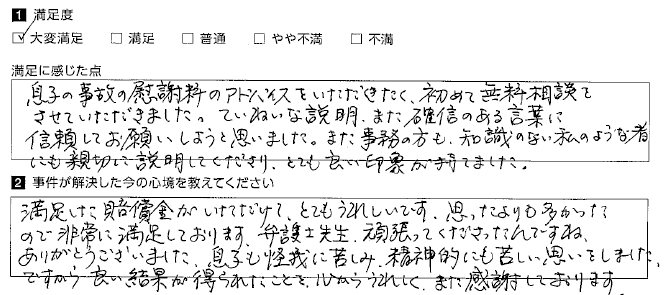 1 満足度
☑ 大変満足 □ 満足 □ 普通 □ やや不満 □ 不満
満足に感じた点
息子の事故の慰謝料のアドバイスをいただきたく、初めて無料相談を
させていただきました。ていねいな説明、また確信のある言葉に
信頼してお願いしようと思いました。また事務の方も、知識のない私のような者
にも親切に説明してくださり、とても良い印象が持てました。
2 事件が解決した今の心境を教えてください
満足した賠償金がいただけて、とてもうれしいです。思ったよりも多かった
ので非常に満足しております。弁護士先生、頑張ってくださったんですね、
ありがとうございました。息子も怪我に苦しみ、精神的にも苦しい思いをしました、
ですから良い結果が得られたことを心からうれしく、また感謝しております。